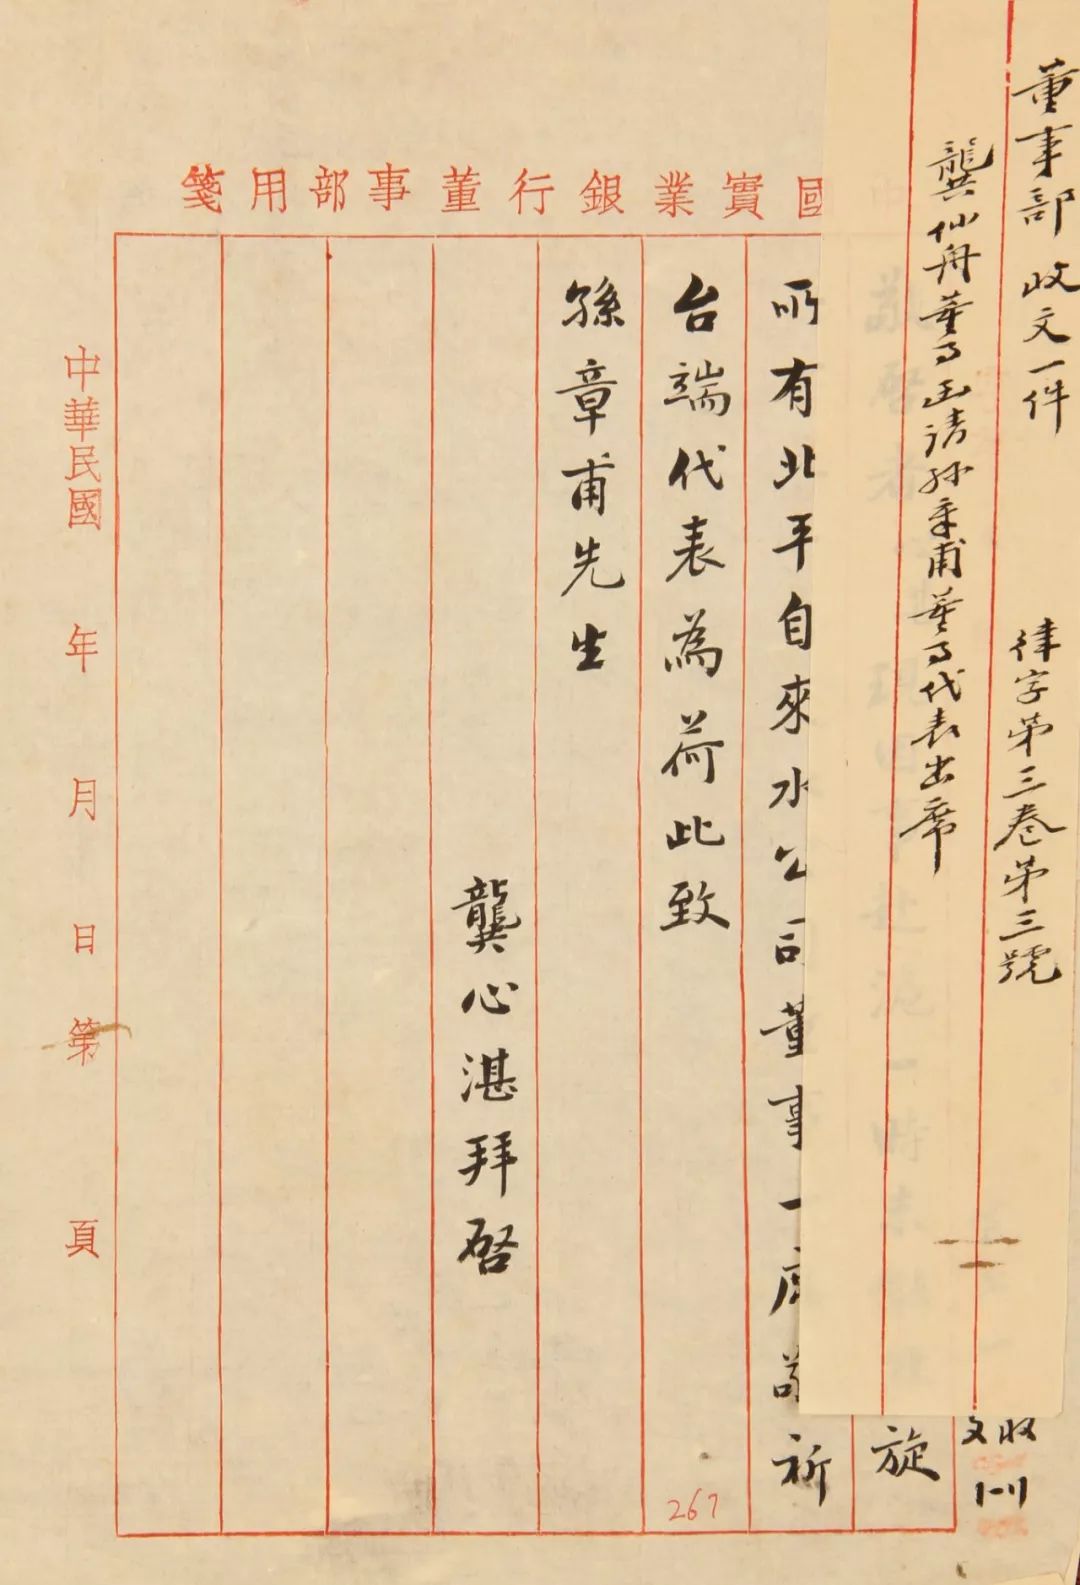 董事部收文一件 律字第三卷第三號
龔仙舟董事函请孙章甫董事代表出席
收文
旋
國實業銀行董事部用箋
所有北平自來水公司董事一席敬祈
台端代表為荷此致
孫章甫先生
龔心湛拜啓
中華民國 年 月 日第 頁
267